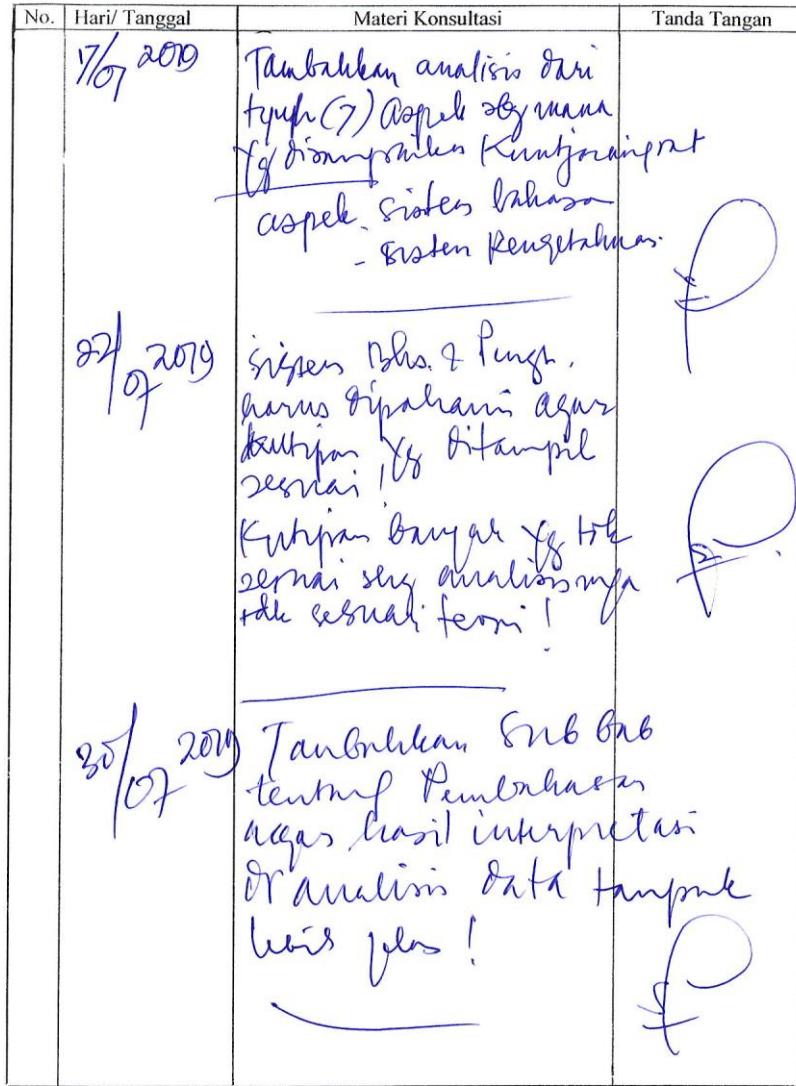 No. Hari/ Tanggal Materi Konsultasi Tanda Tangan
17/07 2019
Tambahkan analisis dari
tujuh (7) Aspek sbgmana
yg disampaikan Kuntjaraingrat
aspek. sistem bahasa
- sistem Pengetahuan.
22/07 2019
sistem Bhs. & Pengt.
harus dipahami agar
kutipan yg ditampil
sesuai!
Kutipan banyak yg tdk
sesuai shg analisisnya
tdk sesuai teori!
30/07 2019
Tambahkan Sub bab
tentang Pembahasan
agar hasil interpretasi
dr analisis data tampak
lebih jelas!